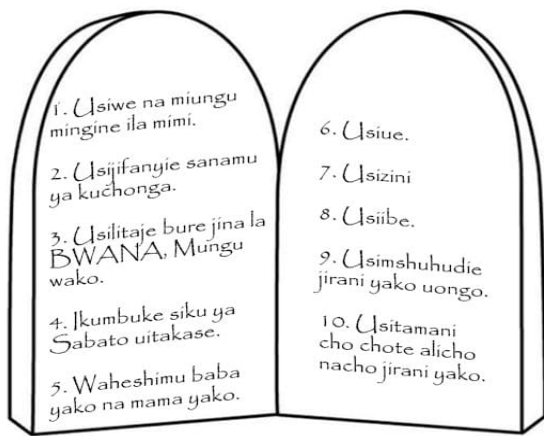 1. Usiwe na miungu
mingine ila mimi.
2. Usijifanyie sanamu
ya kuchonga.
3. Usilitaje bure jina la
BWANA, Mungu
wako.
4. Ikumbuke siku ya
Sabato uitakase.
5. Waheshimu baba
yako na mama yako.
6. Usiue.
7. Usizini
8. Usiibe.
9. Usimshuhudie
jirani yako uongo.
10. Usitamani
cho chote alicho
nacho jirani yako.